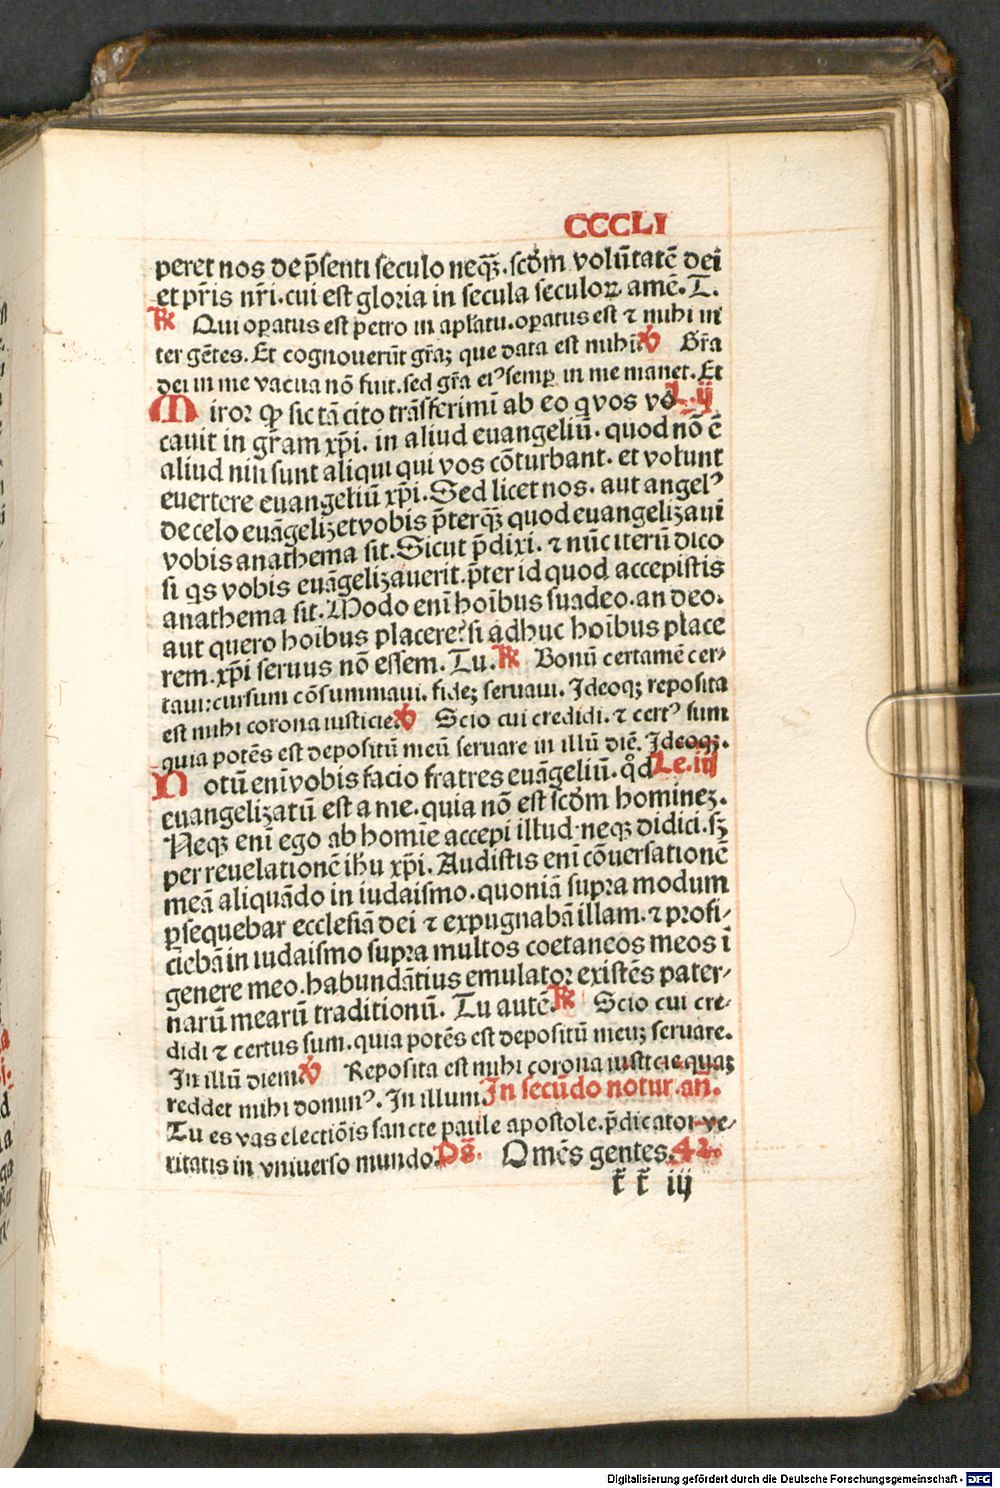 CCCLI
peret nos de p̄senti seculo neqʒ. scd̄m volūtatē dei
et pr̄is nr̄i. cui est gloria in secula seculoꝝ amē. T.
℟ Qui oꝑatus est petro in apl̄atu. oꝑatus est ⁊ mihi in
ter gētes. Et cognouerūt gr̄aʒ que data est mihi. ℣ Gr̄a
dei in me vacua nō fuit. sed gr̄a ei⁹ semꝑ in me manet. Et
Miror ꝙ sic tā cito trāsferimī ab eo qͥ vos vo L. ij
cauit in gr̄am xp̄i. in aliud euangeliū. quod nō ē
aliud nisi sunt aliqui qui vos cōturbant. et volunt
euertere euangeliū xp̄i. Sed licet nos. aut angel⁹
de celo euāgelizet vobis p̄terqʒ quod euangelizaui
vobis anathema sit. Sicut p̄dixi. ⁊ nūc iterū dico
si qͥs vobis euāgelizauerit. p̄ter id quod accepistis
anathema sit. Modo enī hoībus suadeo. an deo.
aut quero hoībus placere? si adhuc hoībus place
rem. xp̄i seruus nō essem. Tu. ℟ Bonū certamē cer⸗
taui: cursum cōsummaui. fideʒ seruaui. Ideoqʒ reposita
est mihi corona iusticie. ℣ Scio cui credidi. ⁊ cert⁹ sum
quia potēs est depositū meū seruare in illū diē. Ideoqʒ.
Notū enī vobis facio fratres euāgeliū. qd̄ Le. iij
euangelizatū est a me. quia nō est scd̄m homineʒ.
Neqʒ enī ego ab homīe accepi illud. neqʒ didici. sʒ
per reuelationē ih̄u xp̄i. Audistis enī cōuersationē
meā aliquādo in iudaismo. quoniā supra modum
ꝑsequebar ecclesiā dei ⁊ expugnabā illam. ⁊ profi⸗
ciebā in iudaismo supra multos coetaneos meos ī
genere meo. habundātius emulator existēs pater⸗
narū mearū traditionū. Tu autē. ℟ Scio cui cre⸗
didi ⁊ certus sum. quia potēs est depositū meuʒ seruare.
In illū diem. ℣ Reposita est mihi corona iusticie quaʒ
reddet mihi domin⁹. In illum In secūdo notur. an̄.
Tu es vas electiōis sancte paule apostole. p̄dicator ve⸗
ritatis in vniuerso mundo. Ps̄. Omēs gentes. 42
r̄ r̄ iij
Digitalisierung gefördert durch die Deutsche Forschungsgemeinschaft - DFG